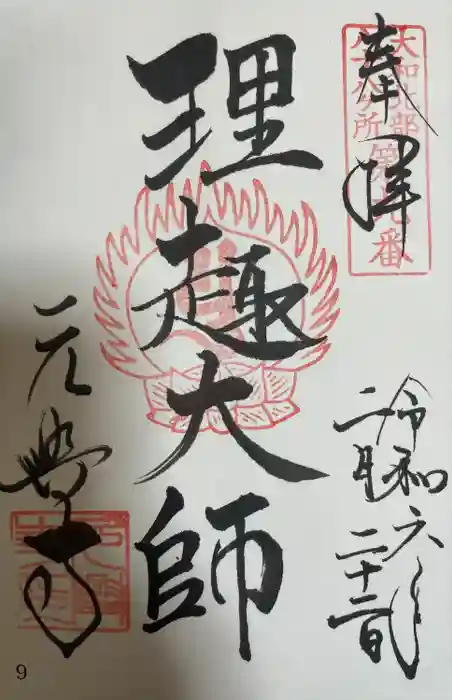 奉拝
大和北部
八十八ヶ所第九番
令和六年
二月二十二日
理趣大師
元興寺
9